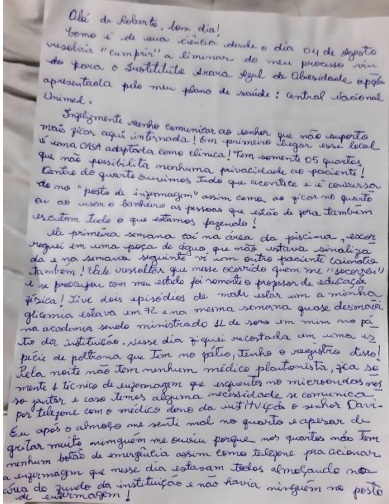 Olá dr Roberto, bom dia!
Como é de sua ciência desde o dia 04 de agosto
resolvi "cumprir" a liminar do meu processo vin
do para o Instituto Arara Azul de Obesidade opção
apresentada pelo meu plano de saúde: Central Nacional
Unimed.
Infelizmente venho comunicar ao senhor que não suporto
mais ficar aqui internada! Em primeiro lugar esse local
é uma CASA adaptada como clínica! Tem somente 05 quartos
que não possibilita nenhuma privacidade ao paciente!
Dentro do quarto ouvimos tudo que acontece e é conversa
do no "posto de enfermagem" assim como ao ficar no quarto
ou ao usar o banheiro as pessoas que estão de fora também
escutam tudo o que estamos fazendo!
Na primeira semana caí na área da piscina, escor
reguei em uma poça de água que não estava sinaliza
da e na semana seguinte vi um outro paciente caindo
também! Vale ressaltar que nesse ocorrido quem me "socorreu"
e se preocupou com meu estado foi somente o professor de educação
física! Tive dois episódios de mal estar um a minha
glicemia estava em 72 e na mesma semana quase desmaiei
na academia sendo ministrado 1L de soro em mim no pá
tio da instituição, nesse dia fiquei recostada em uma es
pécie de poltrona que tem no pátio, tenho o registro disso!
Pela noite não tem nenhum médico plantonista, fica so
mente 1 técnico de enfermagem que esquenta no microondas nos
so jantar e caso temos alguma necessidade se comunica
por telefone com o médico dono da instituição o senhor Davi
Eu após o almoço me senti mal no quarto e apesar de
gritar muito ninguém me ouviu porque nos quartos não tem
nenhum botão de emergência assim como telefone pra acionar
a enfermagem que nesse dia estavam todos almoçando nos
área do fundo da instituição e não havia ninguém no posto
de enfermagem!